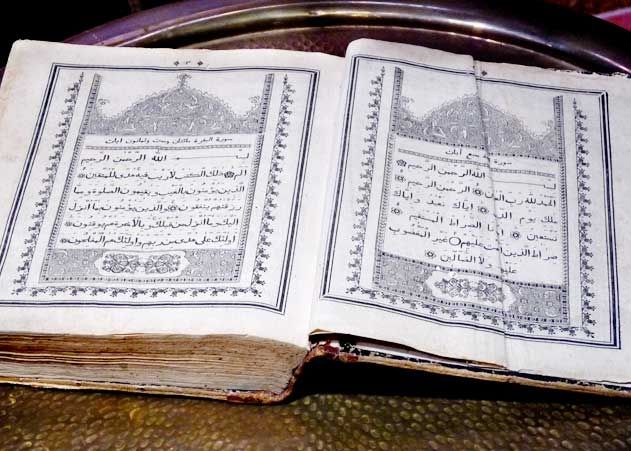 سورة سبع آيات
بسم الله الرحمن الرحيم
الحمد لله رب العالمين الرحمن الرحيم
ملك يوم الدين اياك نعبد واياك
نستعين اهدنا الصراط المستقيم
صراط الذين انعمت عليهم غير المغضوب
عليهم ولا الضالين
سورة البقرة مائتان وست وثمانون آيات
بسم الله الرحمن الرحيم
الم ذلك الكتاب لا ريب فيه هدى للمتقين
الذين يؤمنون بالغيب ويقيمون الصلوة ومما
رزقنهم ينفقون والذين يؤمنون بما انزل
اليك وما انزل من قبلك وبالاخرة هم يوقنون
اولئك على هدى من ربهم واولئك هم المفلحون